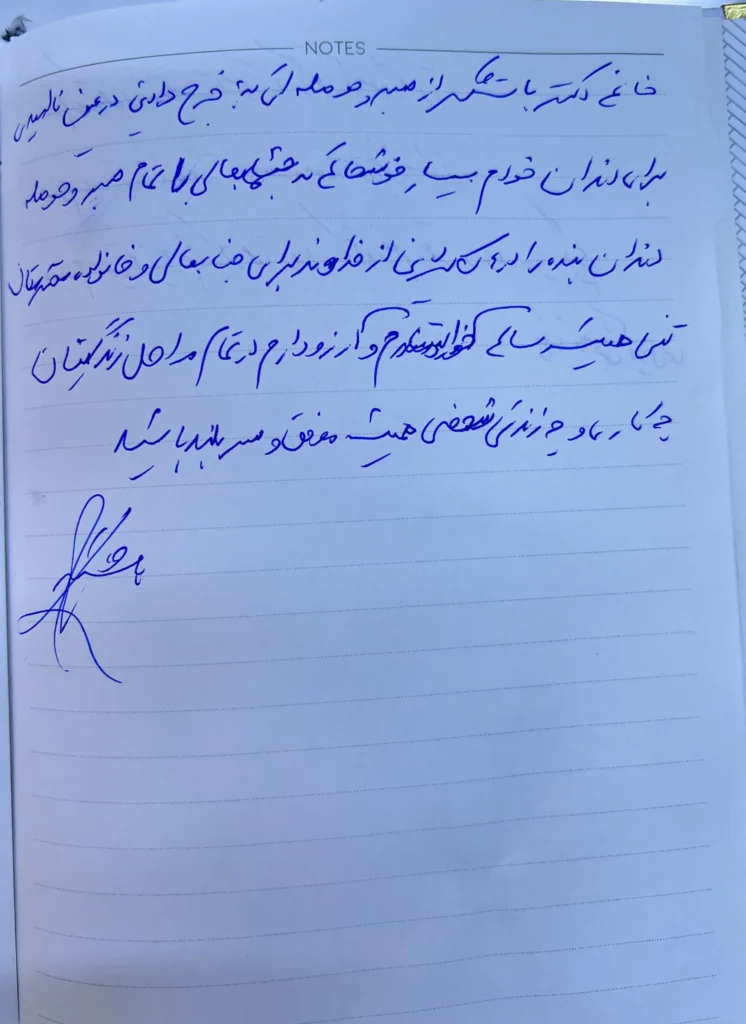 NOTES
خانم دکتر با تشکر از صبر و حوصله ای که به خرج دادین در عین ناامیدی
برای دندان خودم بسیار خوشحالم که جنابعالی با تمام صبر و حوصله
دندان بنده را درمان کردین از خداوند برای جنابعالی و خانواده محترمتان
تنی همیشه سالم خواستارم و آرزو دارم در تمام مراحل زندگیتان
چه کاری و چه زندگی شخصی همیشه موفق و سربلند باشید